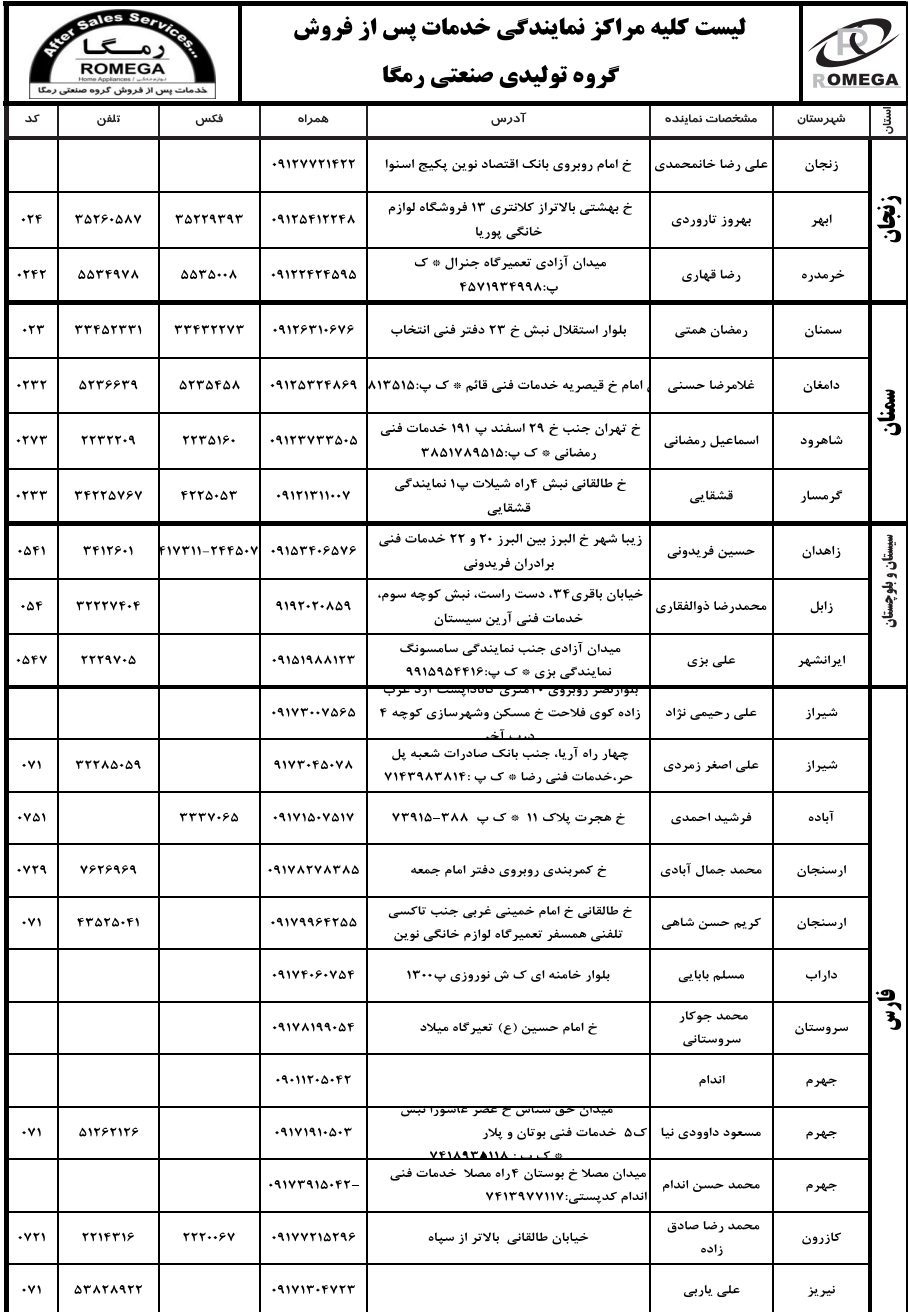 لیست کلیه مراکز نمایندگی خدمات پس از فروش
گروه تولیدی صنعتی رمگا
ROMEGA
After Sales Services...
رمگا
ROMEGA
Home Appliances / لوازم خانگی
خدمات پس از فروش گروه صنعتی رمگا
استان شهرستان مشخصات نماینده آدرس همراه فکس تلفن کد
زنجان
زنجان علی رضا خانمحمدی خ امام روبروی بانک اقتصاد نوین پکیج اسنوا ۰۹۱۲۷۷۲۱۴۲۲
ابهر بهروز تاروردی خ بهشتی بالاتراز کلانتری ۱۳ فروشگاه لوازم
خانگی پوریا ۰۹۱۲۵۴۱۲۲۴۸ ۳۵۲۲۹۳۹۳ ۳۵۲۶۰۵۸۷ ۰۲۴
خرمدره رضا قهاری میدان آزادی تعمیرگاه جنرال * ک
پ:۴۵۷۱۹۳۴۹۹۸ ۰۹۱۲۲۴۲۴۵۹۵ ۵۵۳۵۰۰۸ ۵۵۳۴۹۷۸ ۰۲۴۲
سمنان
سمنان رمضان همتی بلوار استقلال نبش خ ۲۳ دفتر فنی انتخاب ۰۹۱۲۶۳۱۰۶۷۶ ۳۳۴۳۲۲۷۳ ۳۳۴۵۲۳۳۱ ۰۲۳
دامغان غلامرضا حسنی امام خ قیصریه خدمات فنی قائم * ک پ:۸۱۳۵۱۵ ۰۹۱۲۵۳۲۴۸۶۹ ۵۲۳۵۴۵۸ ۵۲۳۶۶۳۹ ۰۲۳۲
شاهرود اسماعیل رمضانی خ تهران جنب خ ۲۹ اسفند پ ۱۹۱ خدمات فنی
رمضانی * ک پ:۳۸۵۱۷۸۹۵۱۵ ۰۹۱۲۳۷۳۳۵۰۵ ۲۲۳۵۱۶۰ ۲۲۳۲۲۰۹ ۰۲۷۳
گرمسار قشقایی خ طالقانی نبش ۴راه شیلات پ۱ نمایندگی
قشقایی ۰۹۱۲۱۳۱۱۰۰۷ ۴۲۲۵۰۵۳ ۳۴۲۲۵۷۶۷ ۰۲۳۳
سیستان و بلوچستان
زاهدان حسین فریدونی زیبا شهر خ البرز بین البرز ۲۰ و ۲۲ خدمات فنی
برادران فریدونی ۰۹۱۵۳۴۰۶۵۷۶ ۴۱۷۳۱۱-۲۴۴۵۰۷ ۳۴۱۲۶۰۱ ۰۵۴۱
زابل محمدرضا ذوالفقاری خیابان باقری۳۴، دست راست، نبش کوچه سوم،
خدمات فنی آرین سیستان ۹۱۹۲۰۲۰۸۵۹ ۳۲۲۲۷۴۰۴ ۰۵۴
ایرانشهر علی بزی میدان آزادی جنب نمایندگی سامسونگ
نمایندگی بزی * ک پ:۹۹۱۵۹۵۴۴۱۶ ۰۹۱۵۱۹۸۸۱۲۳ ۲۲۲۹۷۰۵ ۰۵۴۷
فارس
شیراز علی رحیمی نژاد
زاده کوی فلاحت خ مسکن وشهرسازی کوچه ۴
۰۹۱۷۳۰۰۷۵۶۵
شیراز علی اصغر زمردی چهار راه آریا، جنب بانک صادرات شعبه پل
حر،خدمات فنی رضا * ک پ :۷۱۴۳۹۸۳۸۱۴ ۹۱۷۳۰۴۵۰۷۸ ۳۲۲۸۵۰۵۹ ۰۷۱
آباده فرشید احمدی خ هجرت پلاک ۱۱ * ک پ ۳۸۸-۷۳۹۱۵ ۰۹۱۷۱۵۰۷۵۱۷ ۳۳۳۷۰۶۵ ۰۷۵۱
ارسنجان محمد جمال آبادی خ کمربندی روبروی دفتر امام جمعه ۰۹۱۷۸۲۷۸۳۸۵ ۷۶۲۶۹۶۹ ۰۷۲۹
ارسنجان کریم حسن شاهی خ طالقانی خ امام خمینی غربی جنب تاکسی
تلفنی همسفر تعمیرگاه لوازم خانگی نوین ۰۹۱۷۹۹۶۴۲۵۵ ۴۳۵۲۵۰۴۱ ۰۷۱
داراب مسلم بابایی بلوار خامنه ای ک ش نوروزی پ۱۳۰۰ ۰۹۱۷۴۰۶۰۷۵۴
سروستان محمد جوکار
سروستانی خ امام حسین (ع) تعیرگاه میلاد ۰۹۱۷۸۱۹۹۰۵۴
جهرم اندام ۰۹۰۱۱۲۰۵۰۴۲
جهرم مسعود داوودی نیا میدان حق شناس خ عصر عاشورا نبش
ک۵ خدمات فنی بوتان و پلار
۰۹۱۷۱۹۱۰۵۰۳ ۵۱۲۶۲۱۲۶ ۰۷۱
جهرم محمد حسن اندام میدان مصلا خ بوستان ۴راه مصلا خدمات فنی
اندام کدپستی:۷۴۱۳۹۷۷۱۱۷ ۰۹۱۷۳۹۱۵۰۴۲-
کازرون محمد رضا صادق
زاده خیابان طالقانی بالاتر از سپاه ۰۹۱۷۷۲۱۵۲۹۶ ۲۲۲۰۰۶۷ ۲۲۱۴۳۱۶ ۰۷۲۱
نیریز علی یاربی ۰۹۱۷۱۳۰۴۷۲۳ ۵۳۸۲۸۹۲۲ ۰۷۱